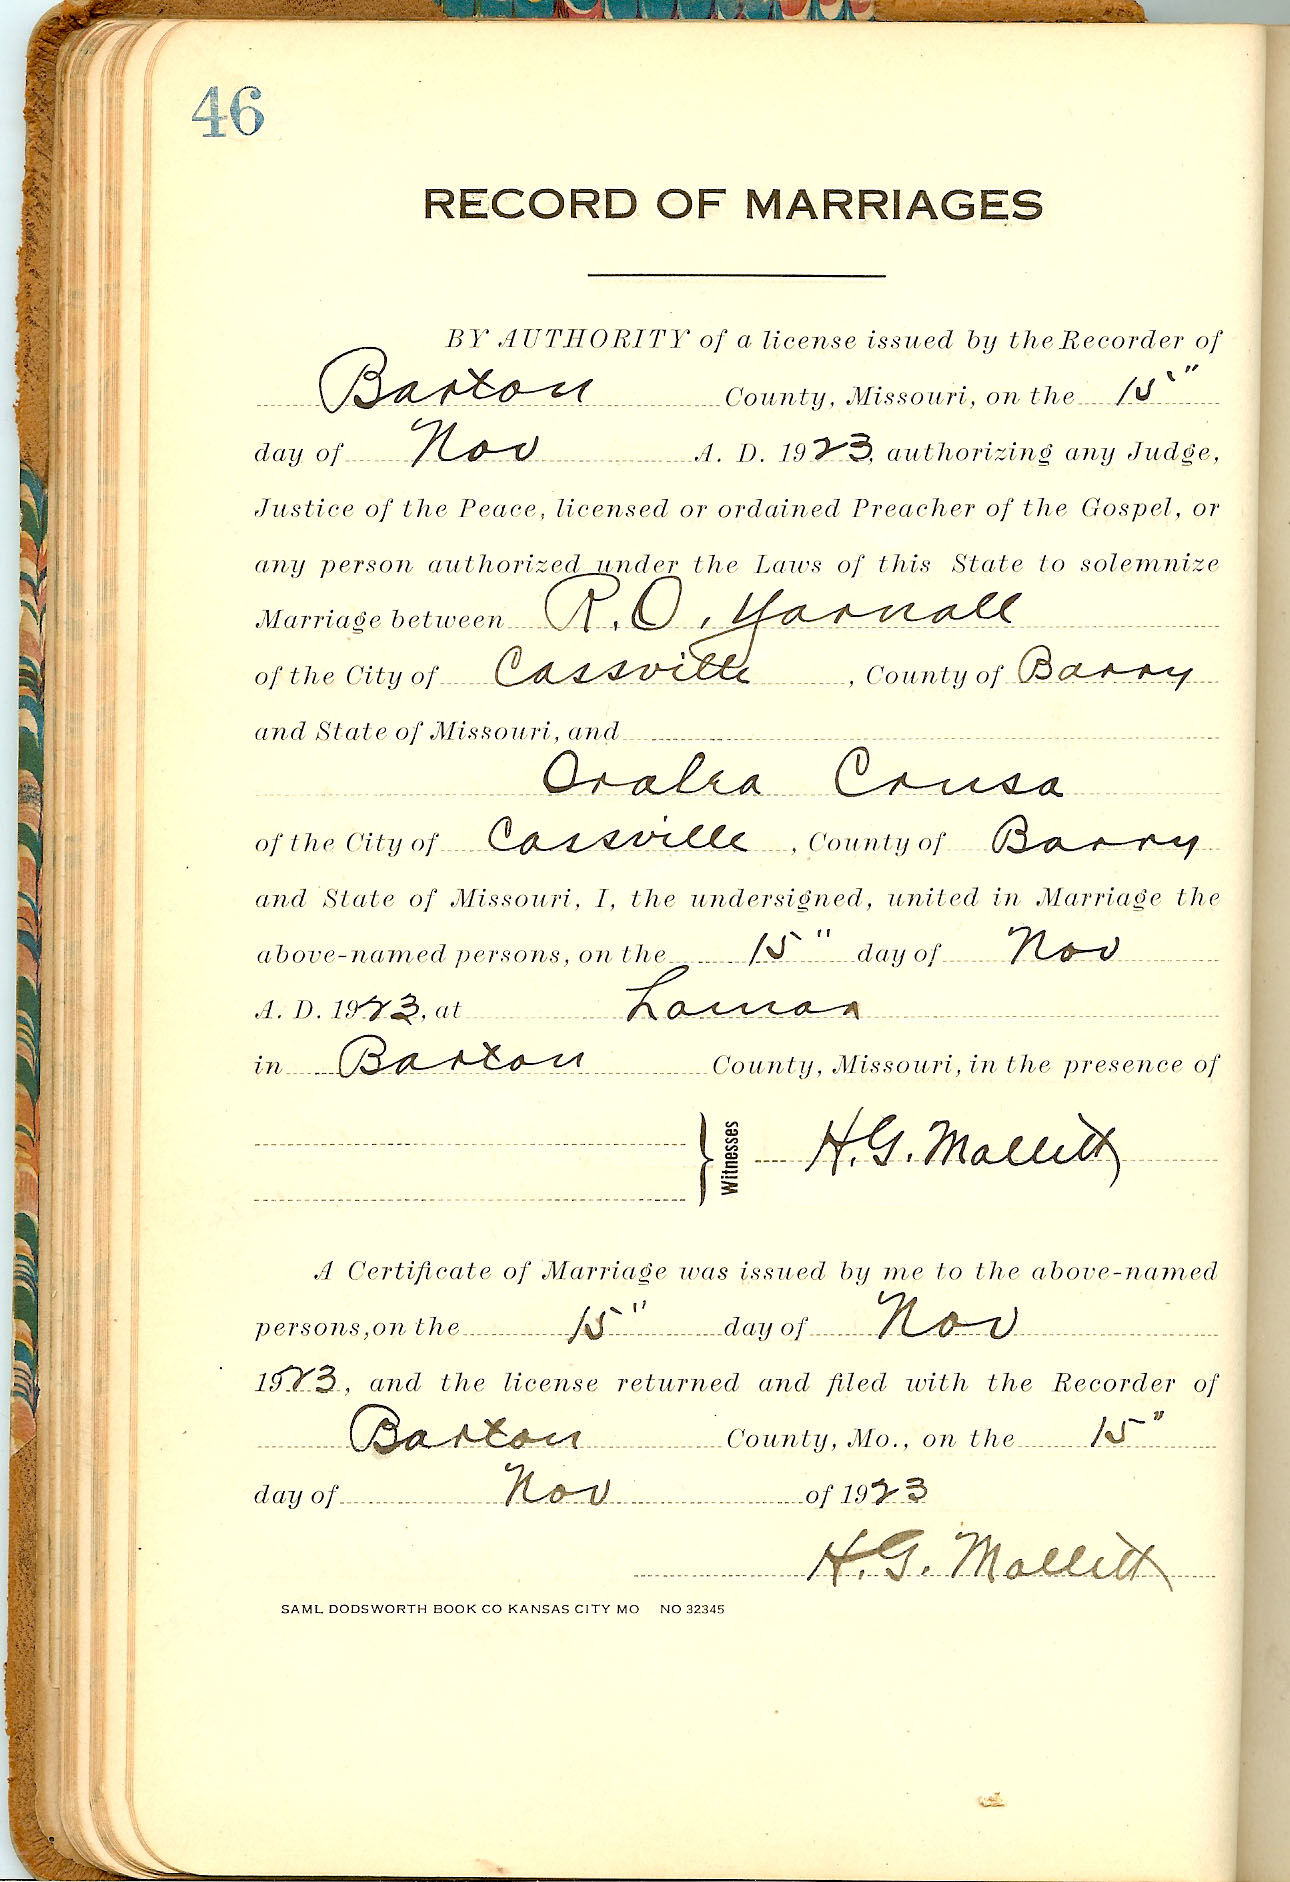 46
RECORD OF MARRIAGES
BY AUTHORITY of a license issued by the Recorder of
Barton County, Missouri, on the 15"
day of Nov A. D. 1923, authorizing any Judge,
Justice of the Peace, licensed or ordained Preacher of the Gospel, or
any person authorized under the Laws of this State to solemnize
Marriage between R. O. Yarnall
of the City of Cassville, County of Barry
and State of Missouri, and
Crusa
of the City of Cassville, County of Barry
and State of Missouri, I, the undersigned, united in Marriage the
above-named persons, on the 15" day of Nov
A. D. 1923, at Lamar
in Barton County, Missouri, in the presence of
Witnesses H. G. Mallitt
A Certificate of Marriage was issued by me to the above-named
persons, on the 15" day of Nov
1923, and the license returned and filed with the Recorder of
Barton County, Mo., on the 15"
day of Nov of 1923
H. G. Mallitt
SAML DODSWORTH BOOK CO KANSAS CITY MO NO 32345